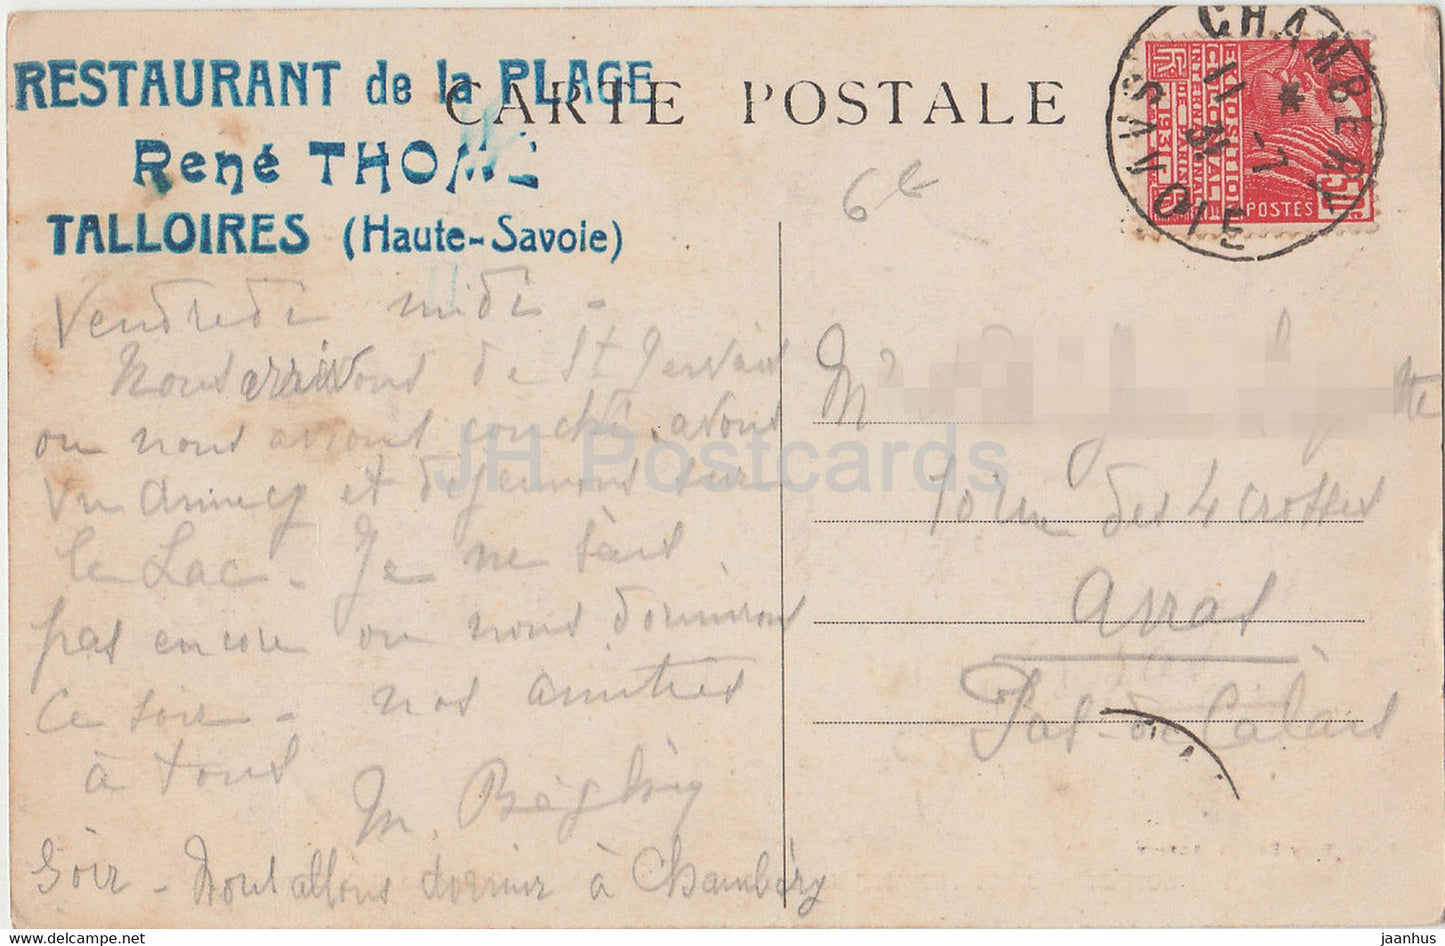 RESTAURANT de la PLAGE
René THOME
TALLOIRES (Haute-Savoie)
CARTE POSTALE
CHAMBERY
11 * -7
31
SAVOIE
EXPOSITION
COLONIALE
INTERNATIONALE
DE PARIS 1931
RF
POSTES 50c
6e
Vendredi midi -
Nous arrivons de St Gervais
ou nous avions couché. avons
vu Annecy et déjeunons sur
le Lac - Je ne sais
pas encore ou nous dormirons
ce soir - nos amitiés
à tous
M.
Soir - Nous allons dormir à Chambéry
M
10 rue des 4 crosses
Arras
Pas-de-Calais
JH Postcards
www.delcampe.net
jaanhus